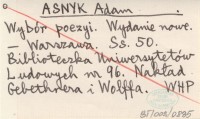 ASNYK Adam .
Wybór poezyj. Wydanie nowe.
— Warszawa. Ss. 50.
Biblioteczka Uniwersytetów
Ludowych nr 96. Nakład
Gebethnera i Wolffa. WHP